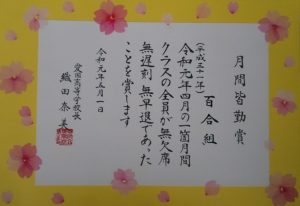 月間皆勤賞
百合組
(平成三十一年)
令和元年四月の一箇月間
クラスの全員が無欠席
無遅刻 無早退であった
ことを賞します
令和元年五月一日
愛国高等学校長
織田奈美